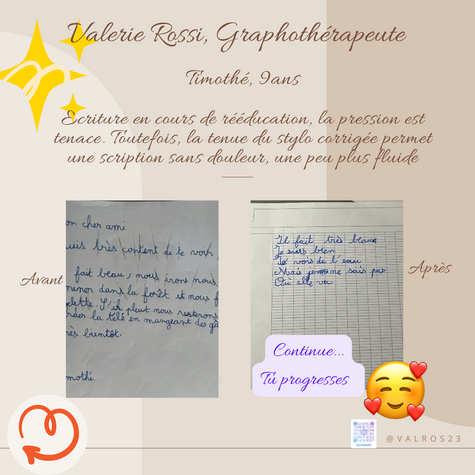 Valerie Rossi, Graphothérapeute
Timothé, 9ans
Ecriture en cours de rééducation, la pression est
tenace. Toutefois, la tenue du stylo corrigée permet
une scription sans douleur, une peu plus fluide
Avant
on cher ami
uis très content de te voir
fait beau, nous irons nous
mener dans la forêt et nous f
elette. S'il pleut nous resterons
rder la télé en mangeant des gâ
ès bientôt.
mothé
Il fait très beau
Je suis bien
Je vois de l'eau
Mais je ne sais pas
Où elle va
Après
Continue...
Tu progresses
@VALROS23